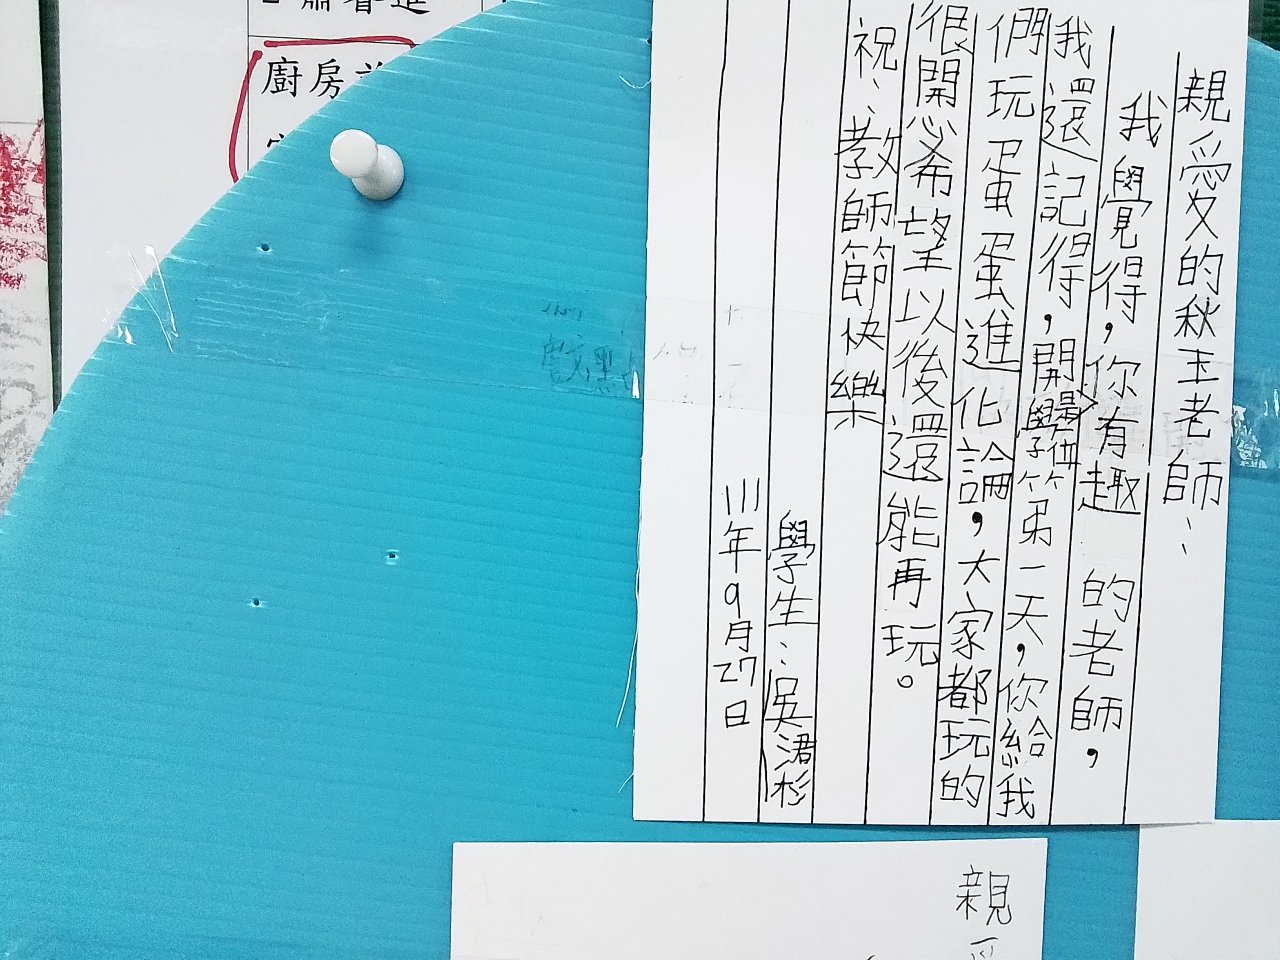 親愛的秋玉老師：
我覺得，你有趣的老師，
我還記得，開學第一天，你給我
們玩蛋蛋進化論，大家都玩的
很開心希望以後還能再玩。
祝：教師節快樂
學生：吳涒杉
111年9月27日
廚房
親